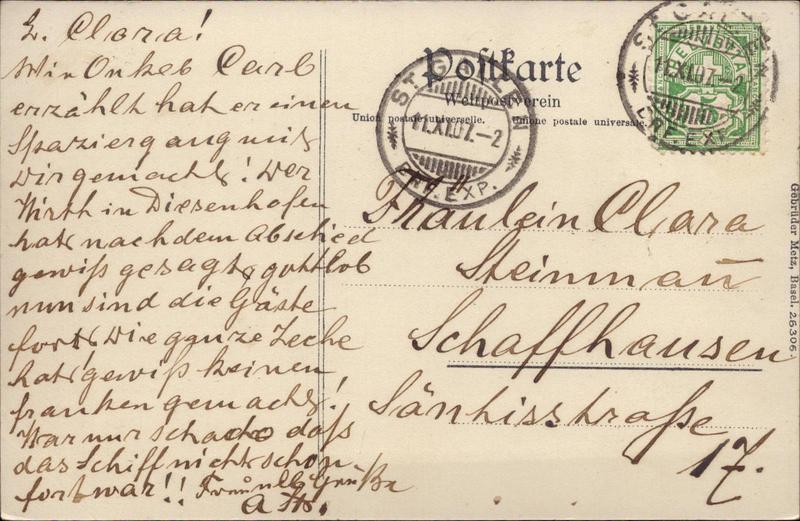 L. Clara!
Wie Onkel Carl
erzählt hat er einen
Spaziergang mit
Dir gemacht! Der
Wirth in Diesenhofen
hat nach dem Abschied
gewiß gesagt, gottlob
nun sind die Gäste
fort. Die ganze Zeche
hat gewiß keinen
franken gemacht!
War nur schade daß
das Schiff nicht schon
fort war!! Freundl. Grüße
Postkarte
Weltpostverein
Union postale universelle. Unione postale universale.
ST. GALLEN
11.XI.07.–2
BRF. EXP.
ST. GALLEN
11.XI.07.–2
BRF. EXP.
Fräulein Clara
Steinmañ
Schaffhausen
Säntisstraße
17.
Gebrüder Metz, Basel. 26306.